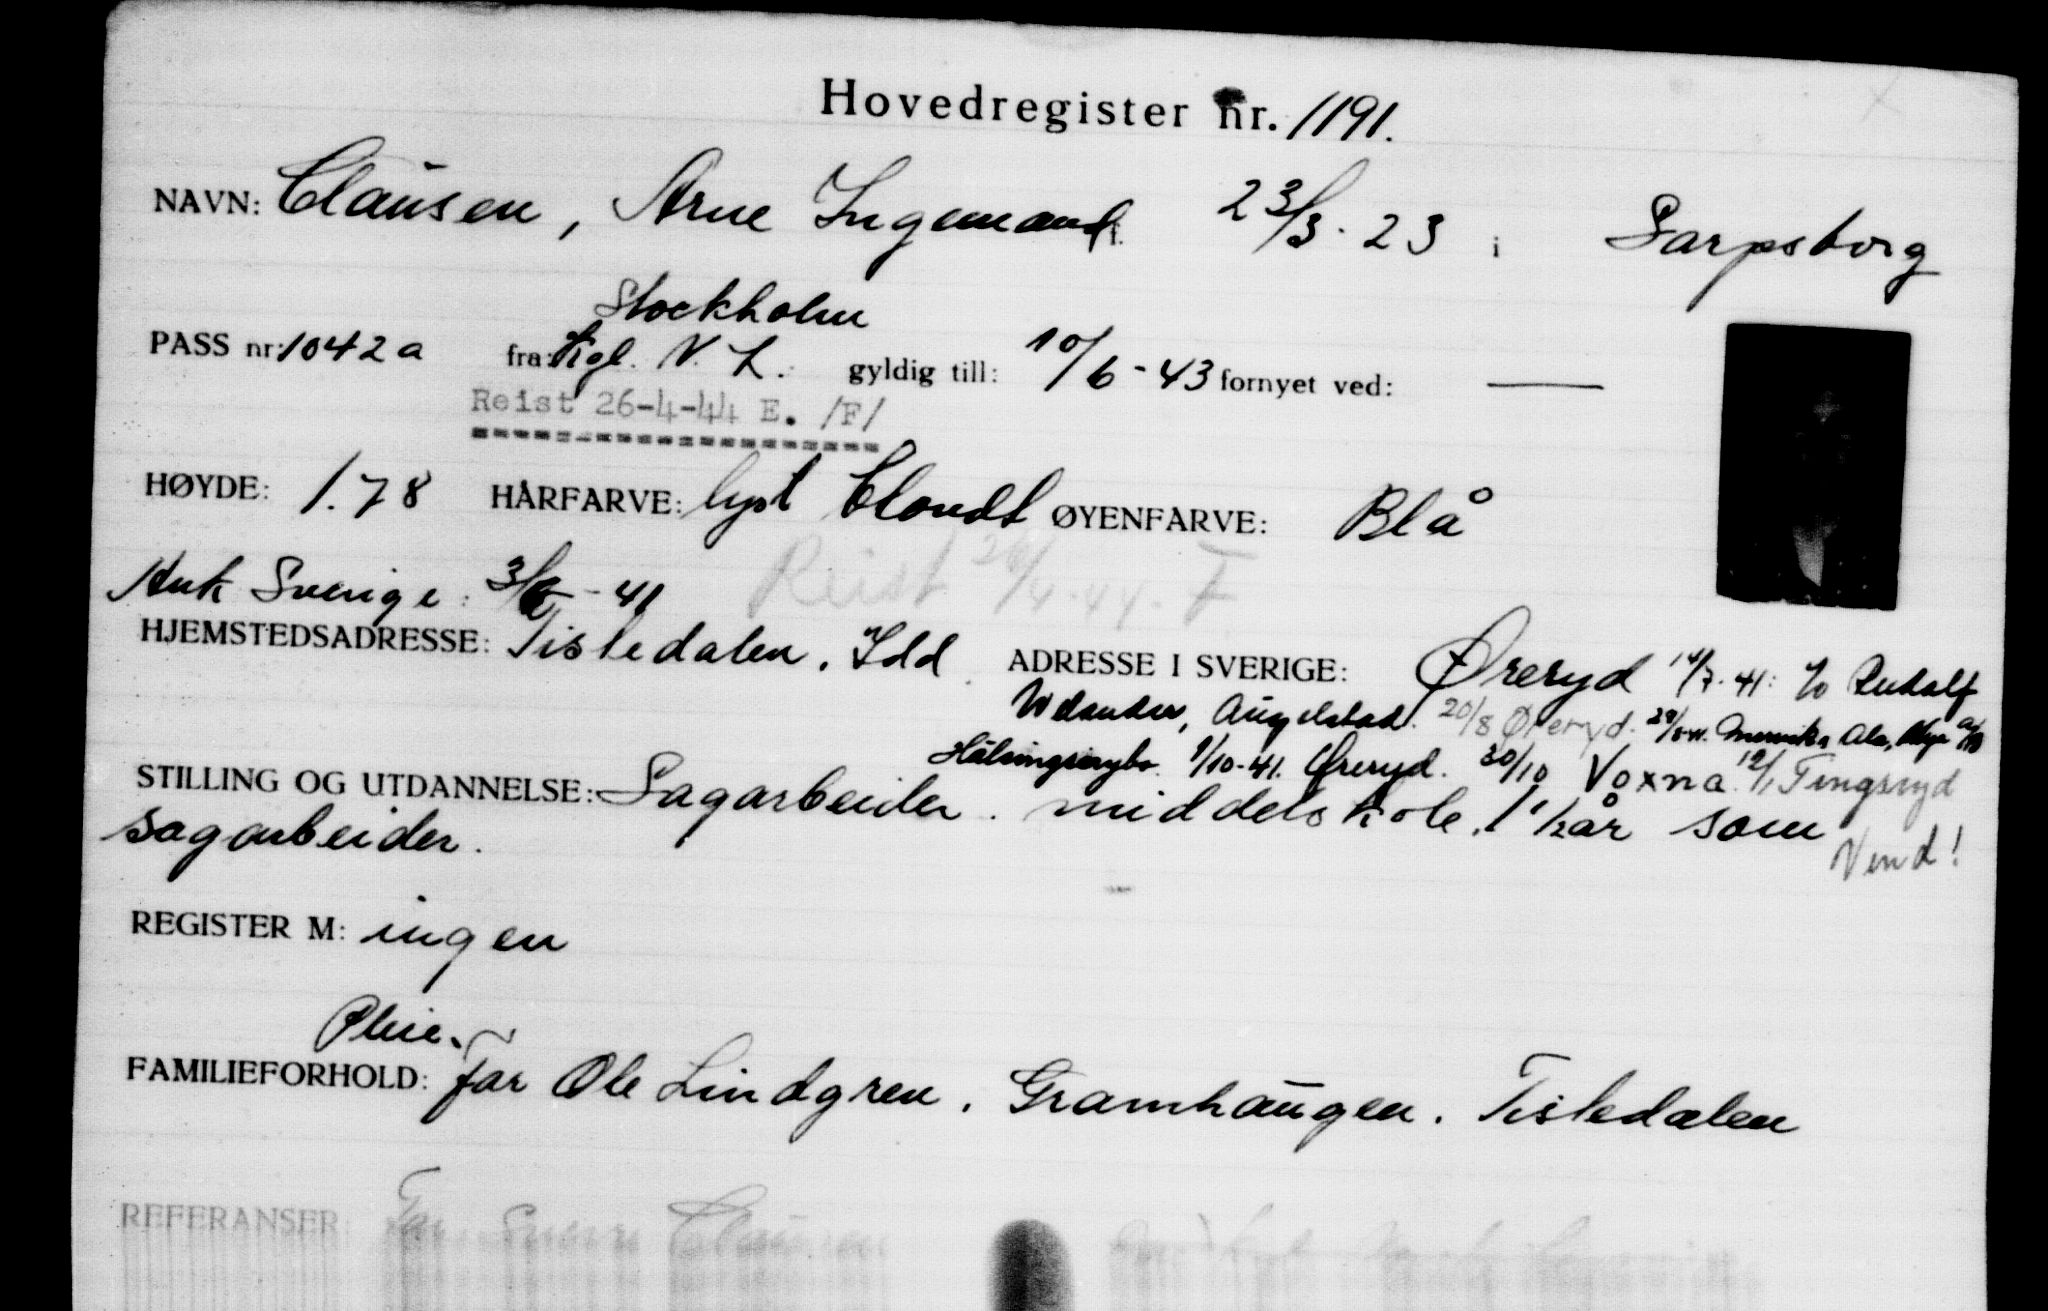 Hovedregister nr. 1191.
NAVN: Clausen, Arne Ingemand f. 23/3-23 i Sarpsborg
Stockholm
PASS nr: 1042a fra: Kgl. N. L. gyldig till: 10/6-43 fornyet ved: —
Reist 26-4-44 E. /F/
HØYDE: 1.78 HÅRFARVE: lyst blondt ØYENFARVE: Blå
Reist 26/4-44. F
Ank Sverige: -41
HJEMSTEDSADRESSE: Tistedalen, Idd ADRESSE I SVERIGE: Øreryd 14/7-41: c/o Rudolf
20/8 Øreryd.
Hälsingenybo. 1/10-41. Øreryd. 30/10 Voxna. 12/1 Tingsryd
STILLING OG UTDANNELSE: Sagarbeider. middelskole. 1 1/2 år som
sagarbeider.
Vend!
REGISTER M: ingen
Pleie.
FAMILIEFORHOLD: far Ole Lindgren. Gramhaugen. Tistedalen
REFERANSER: Clausen